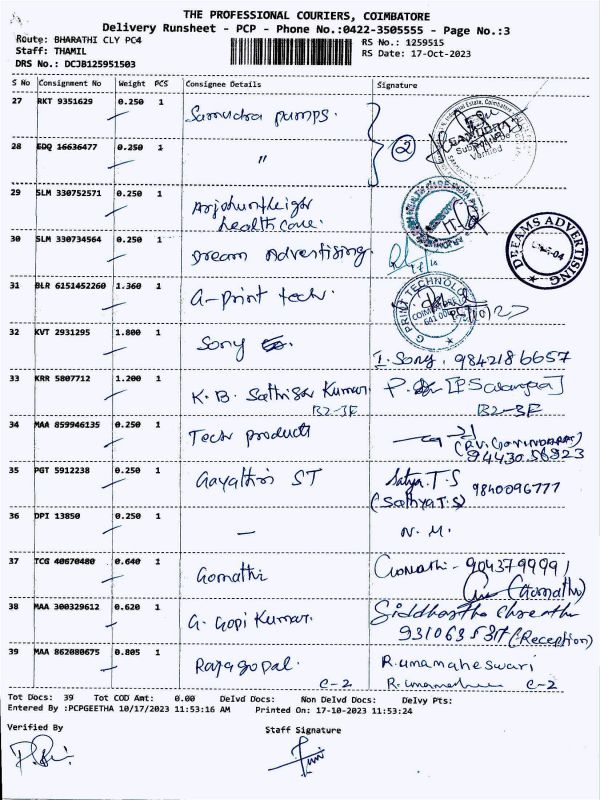 THE PROFESSIONAL COURIERS, COIMBATORE
Delivery Runsheet - PCP - Phone No.:0422-3505555 - Page No.:3
Route: BHARATHI CLY PC4 RS No.: 1259515
Staff: THAMIL RS Date: 17-Oct-2023
DRS No.: DCJB125951503
S No Consignment No Weight PCS Consignee Details Signature
27 RKT 9351629 0.250 1 Samudra pumps.
28 EDQ 16636477 0.250 1 " 2
29 SLM 330752571 0.250 1
healthcare.
30 SLM 330734564 0.250 1 Dream Advertising
DREAMS ADVERTISING
31 BLR 6151452260 1.360 1 G-Print tech.
G PRINT TECHNOLOGY
32 KVT 2931295 1.800 1 Sony
I. Sony. 9842186657
33 KRR 5807712 1.200 1 K. B. Sathish Kumar
B2-3F B2-3F
34 MAA 859946135 0.250 1 Tech products
(R.V. GOVINDARAJ)
35 PGT 5912238 0.250 1 Gayathiri ST Satya.T.S 9840096777
(Sathya T.S)
36 DPI 13850 0.250 1 — N. M.
37 TCG 40670480 0.640 1 Gomathi Gomathi - 9043799991
(Gomathi)
38 MAA 300329612 0.620 1 G. Gopi Kumar. Siddhartha
(Reception)
39 MAA 862080675 0.805 1 Rajagopal. R.umamaheswari
C-2 C-2
Tot Docs: 39 Tot COD Amt: 0.00 Delvd Docs: Non Delvd Docs: Delvy Pts:
Entered By :PCPGEETHA 10/17/2023 11:53:16 AM Printed On: 17-10-2023 11:53:24
Verified By Staff Signature